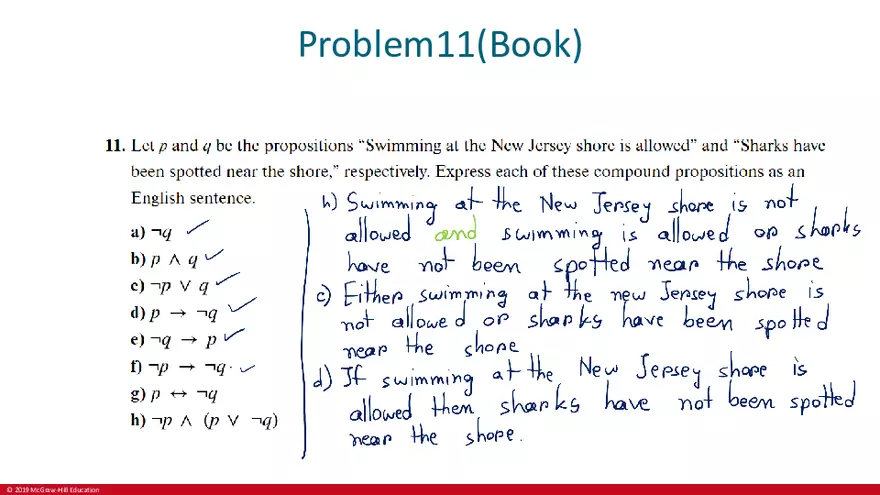 Problem11(Book)
11. Let p and q be the propositions “Swimming at the New Jersey shore is allowed” and “Sharks have
been spotted near the shore,” respectively. Express each of these compound propositions as an
English sentence.
a) ¬q ✓
b) p ∧ q ✓
c) ¬p ∨ q ✓
d) p → ¬q ✓
e) ¬q → p ✓
f) ¬p → ¬q ✓
g) p ↔ ¬q
h) ¬p ∧ (p ∨ ¬q)
h) Swimming at the New Jersey shore is not
allowed and swimming is allowed or sharks
have not been spotted near the shore
c) Either swimming at the new Jersey shore is
not allowed or sharks have been spotted
near the shore
d) If swimming at the New Jersey shore is
allowed then sharks have not been spotted
near the shore.
© 2019 McGraw-Hill Education